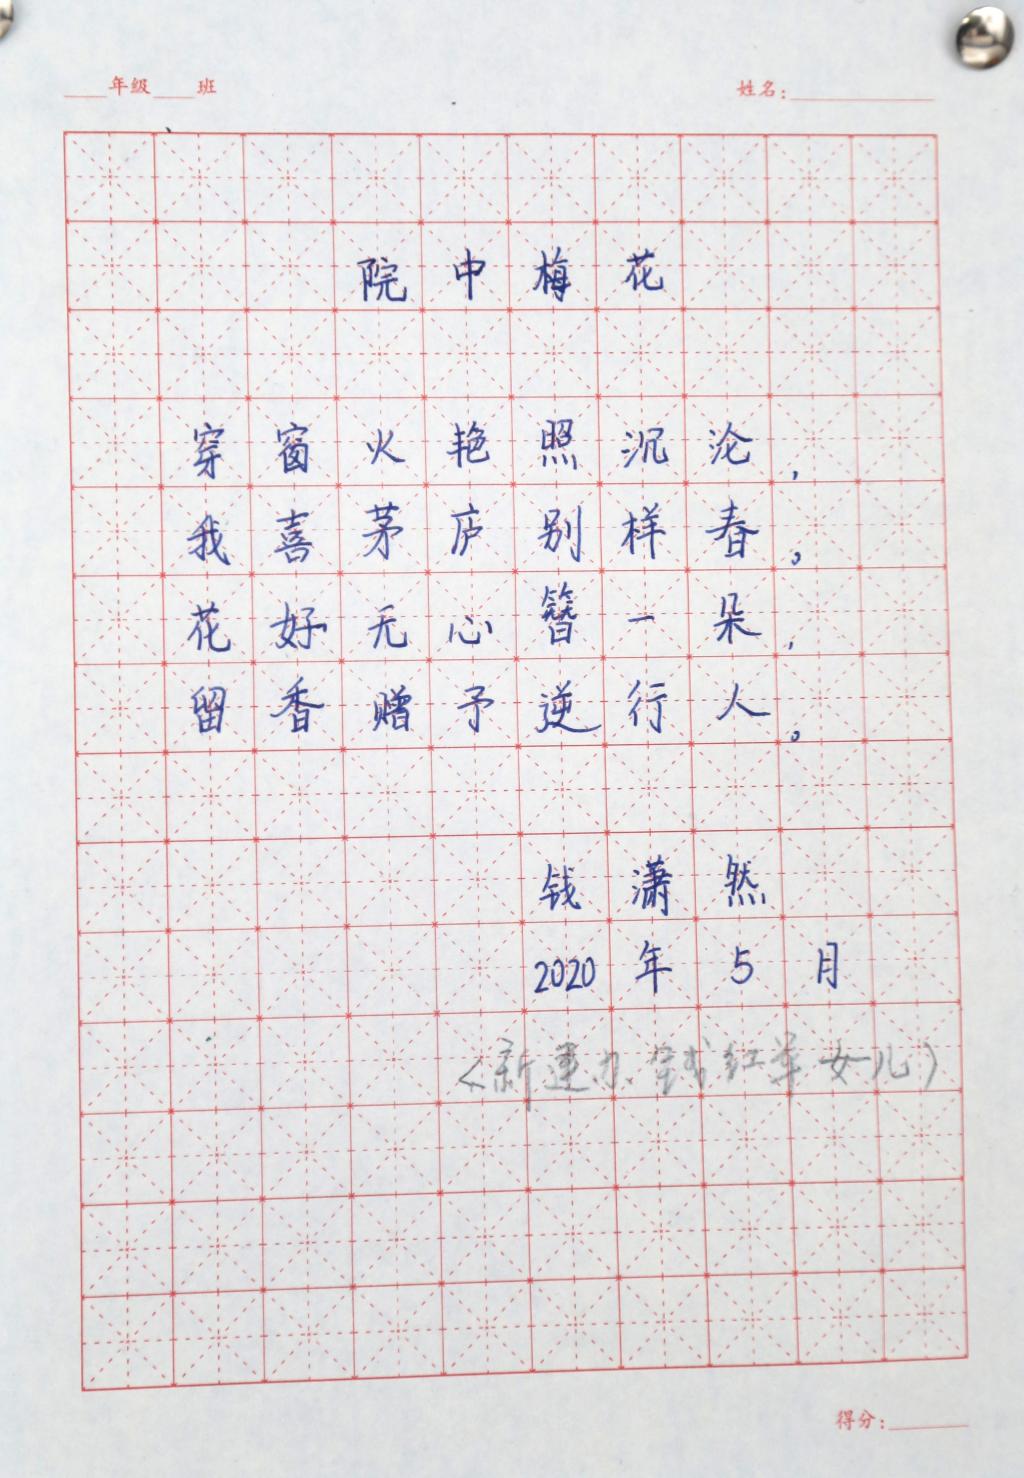 ____年级____班 姓名:____________
院中梅花
穿窗火艳照沉沦,
我喜茅庐别样春。
花好无心簪一朵,
留香赠予逆行人。
钱潇然
2020年5月
(新建办 钱红革女儿)
得分:______